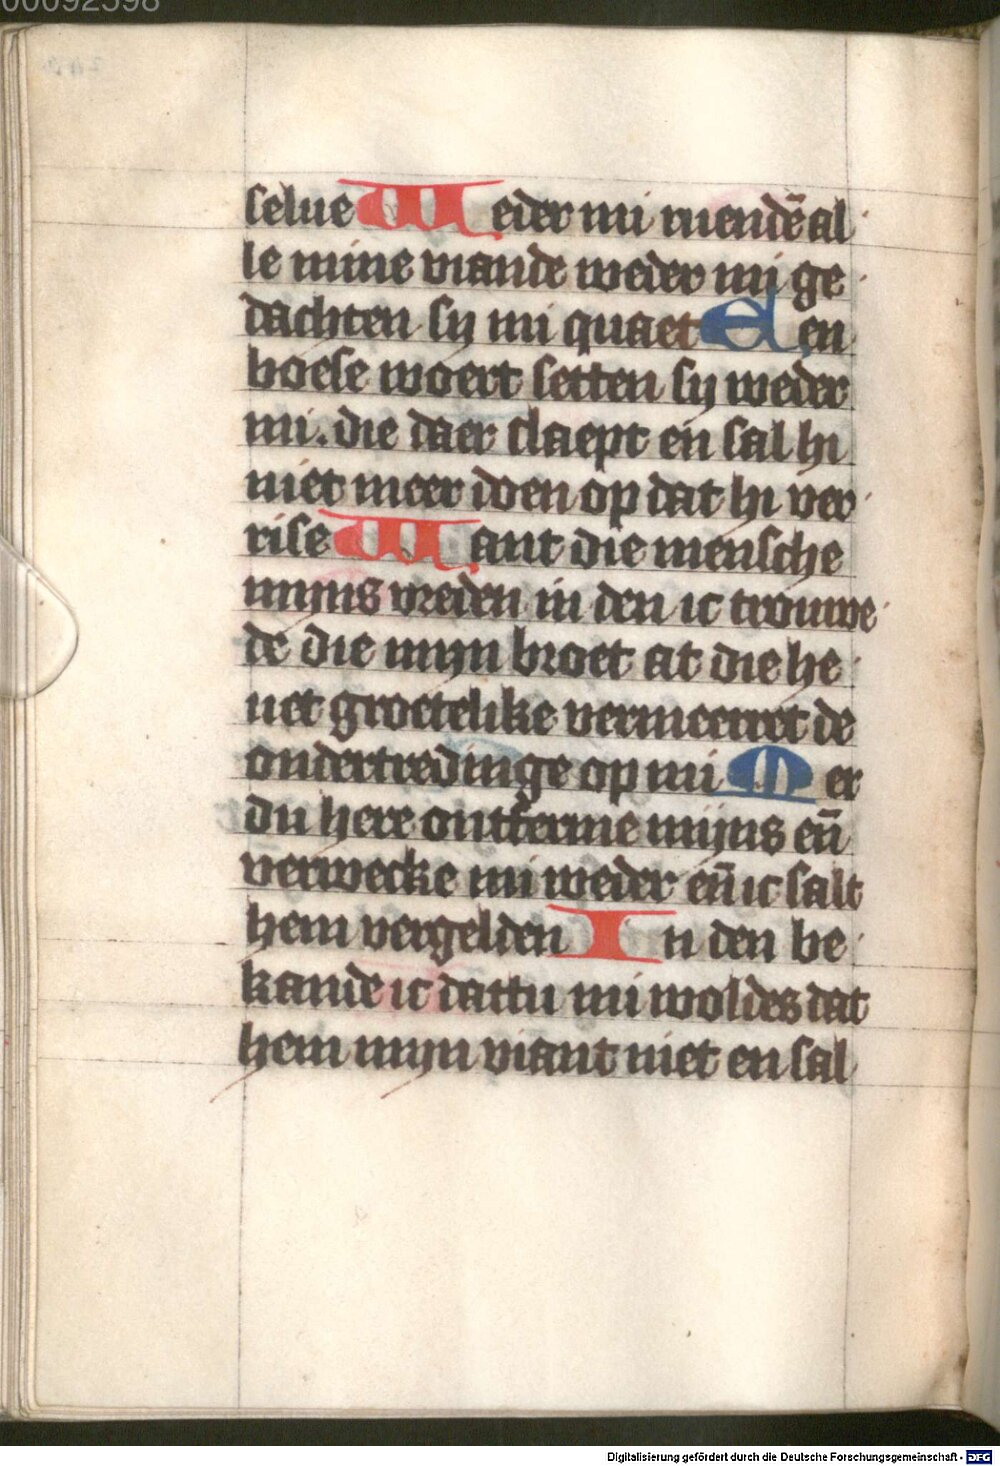 00092598
selue Weder mi ruendē al
le mine viande weder mi ge
dachten sij mi quaet Een
boese woert setten sij weder
mi. die daer slaept en sal hi
niet meer doen op dat hi ver
rise Want die mensche
mijns vreden in den ic trouwe
de die mijn broet at die he
uet groetelike vermeerret de
ondertredinge op mi Mer
du here ontferme mijns eñ
verwecke mi weder eñ ic salt
hem vergelden In den be
kande ic dattu mi woldes dat
hem mijn viant niet en sal
Digitalisierung gefördert durch die Deutsche Forschungsgemeinschaft - DFG